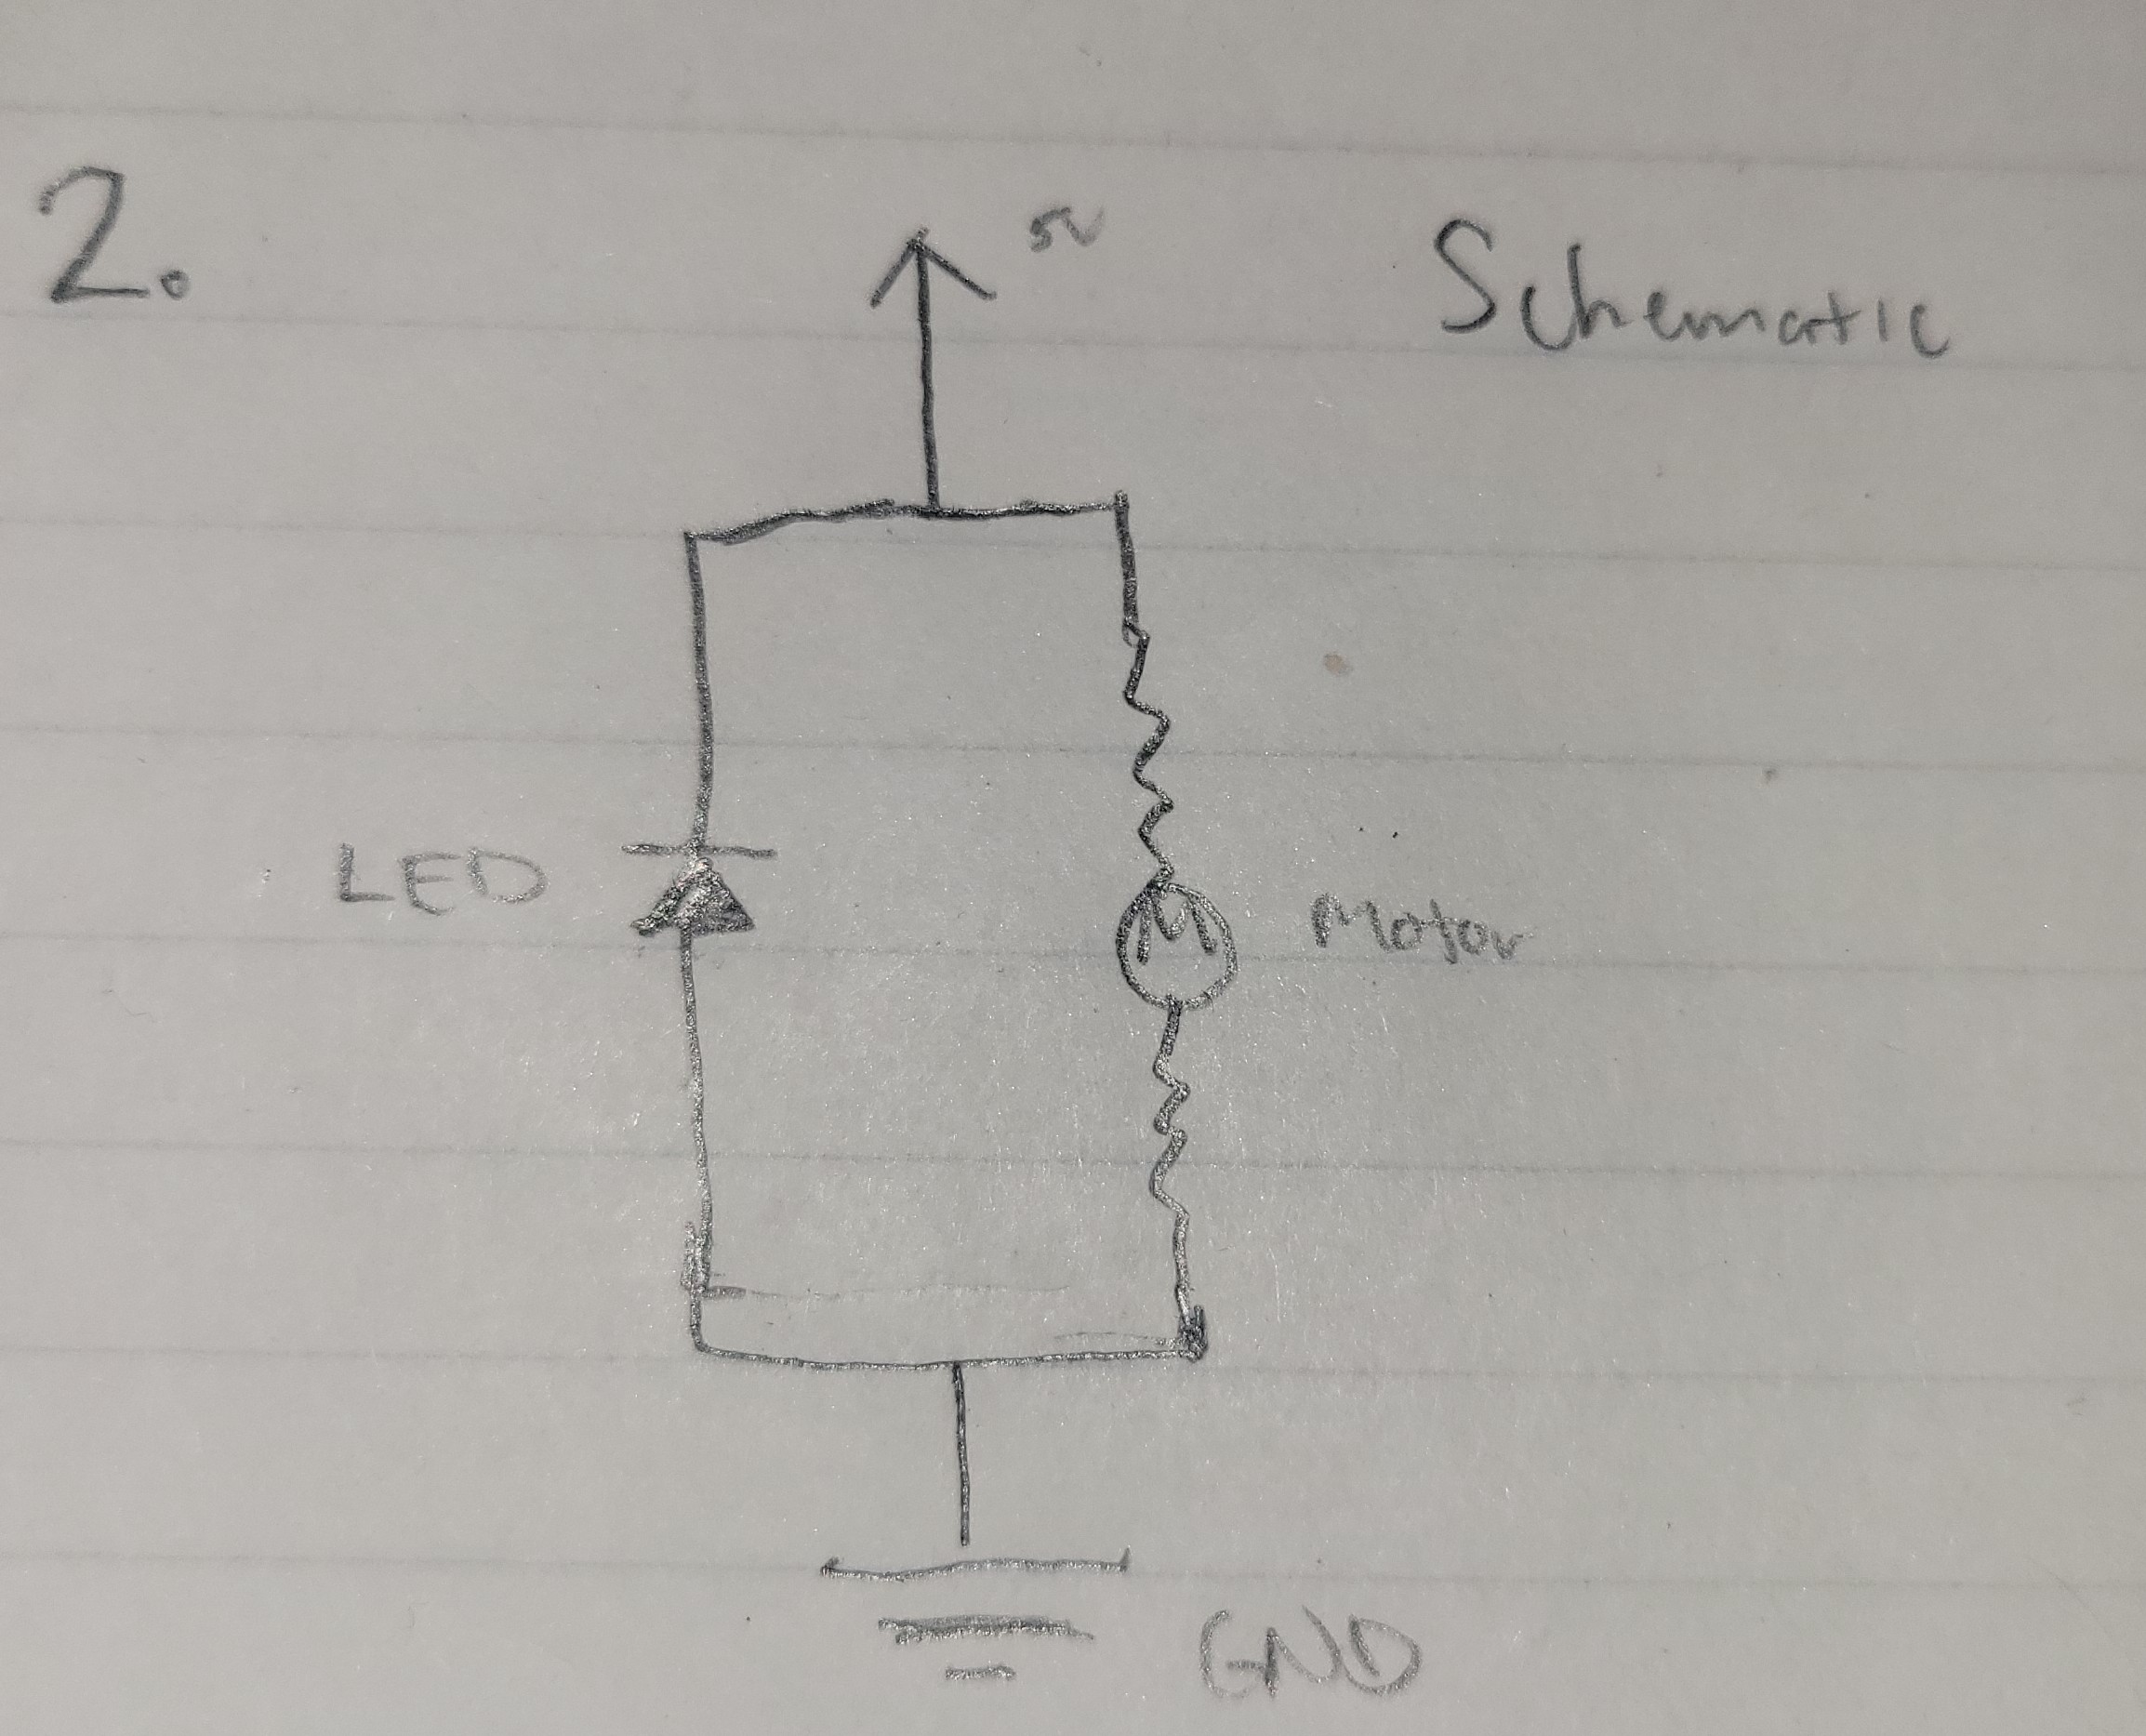 2.
5V
Schematic
LED
M
Motor
GND